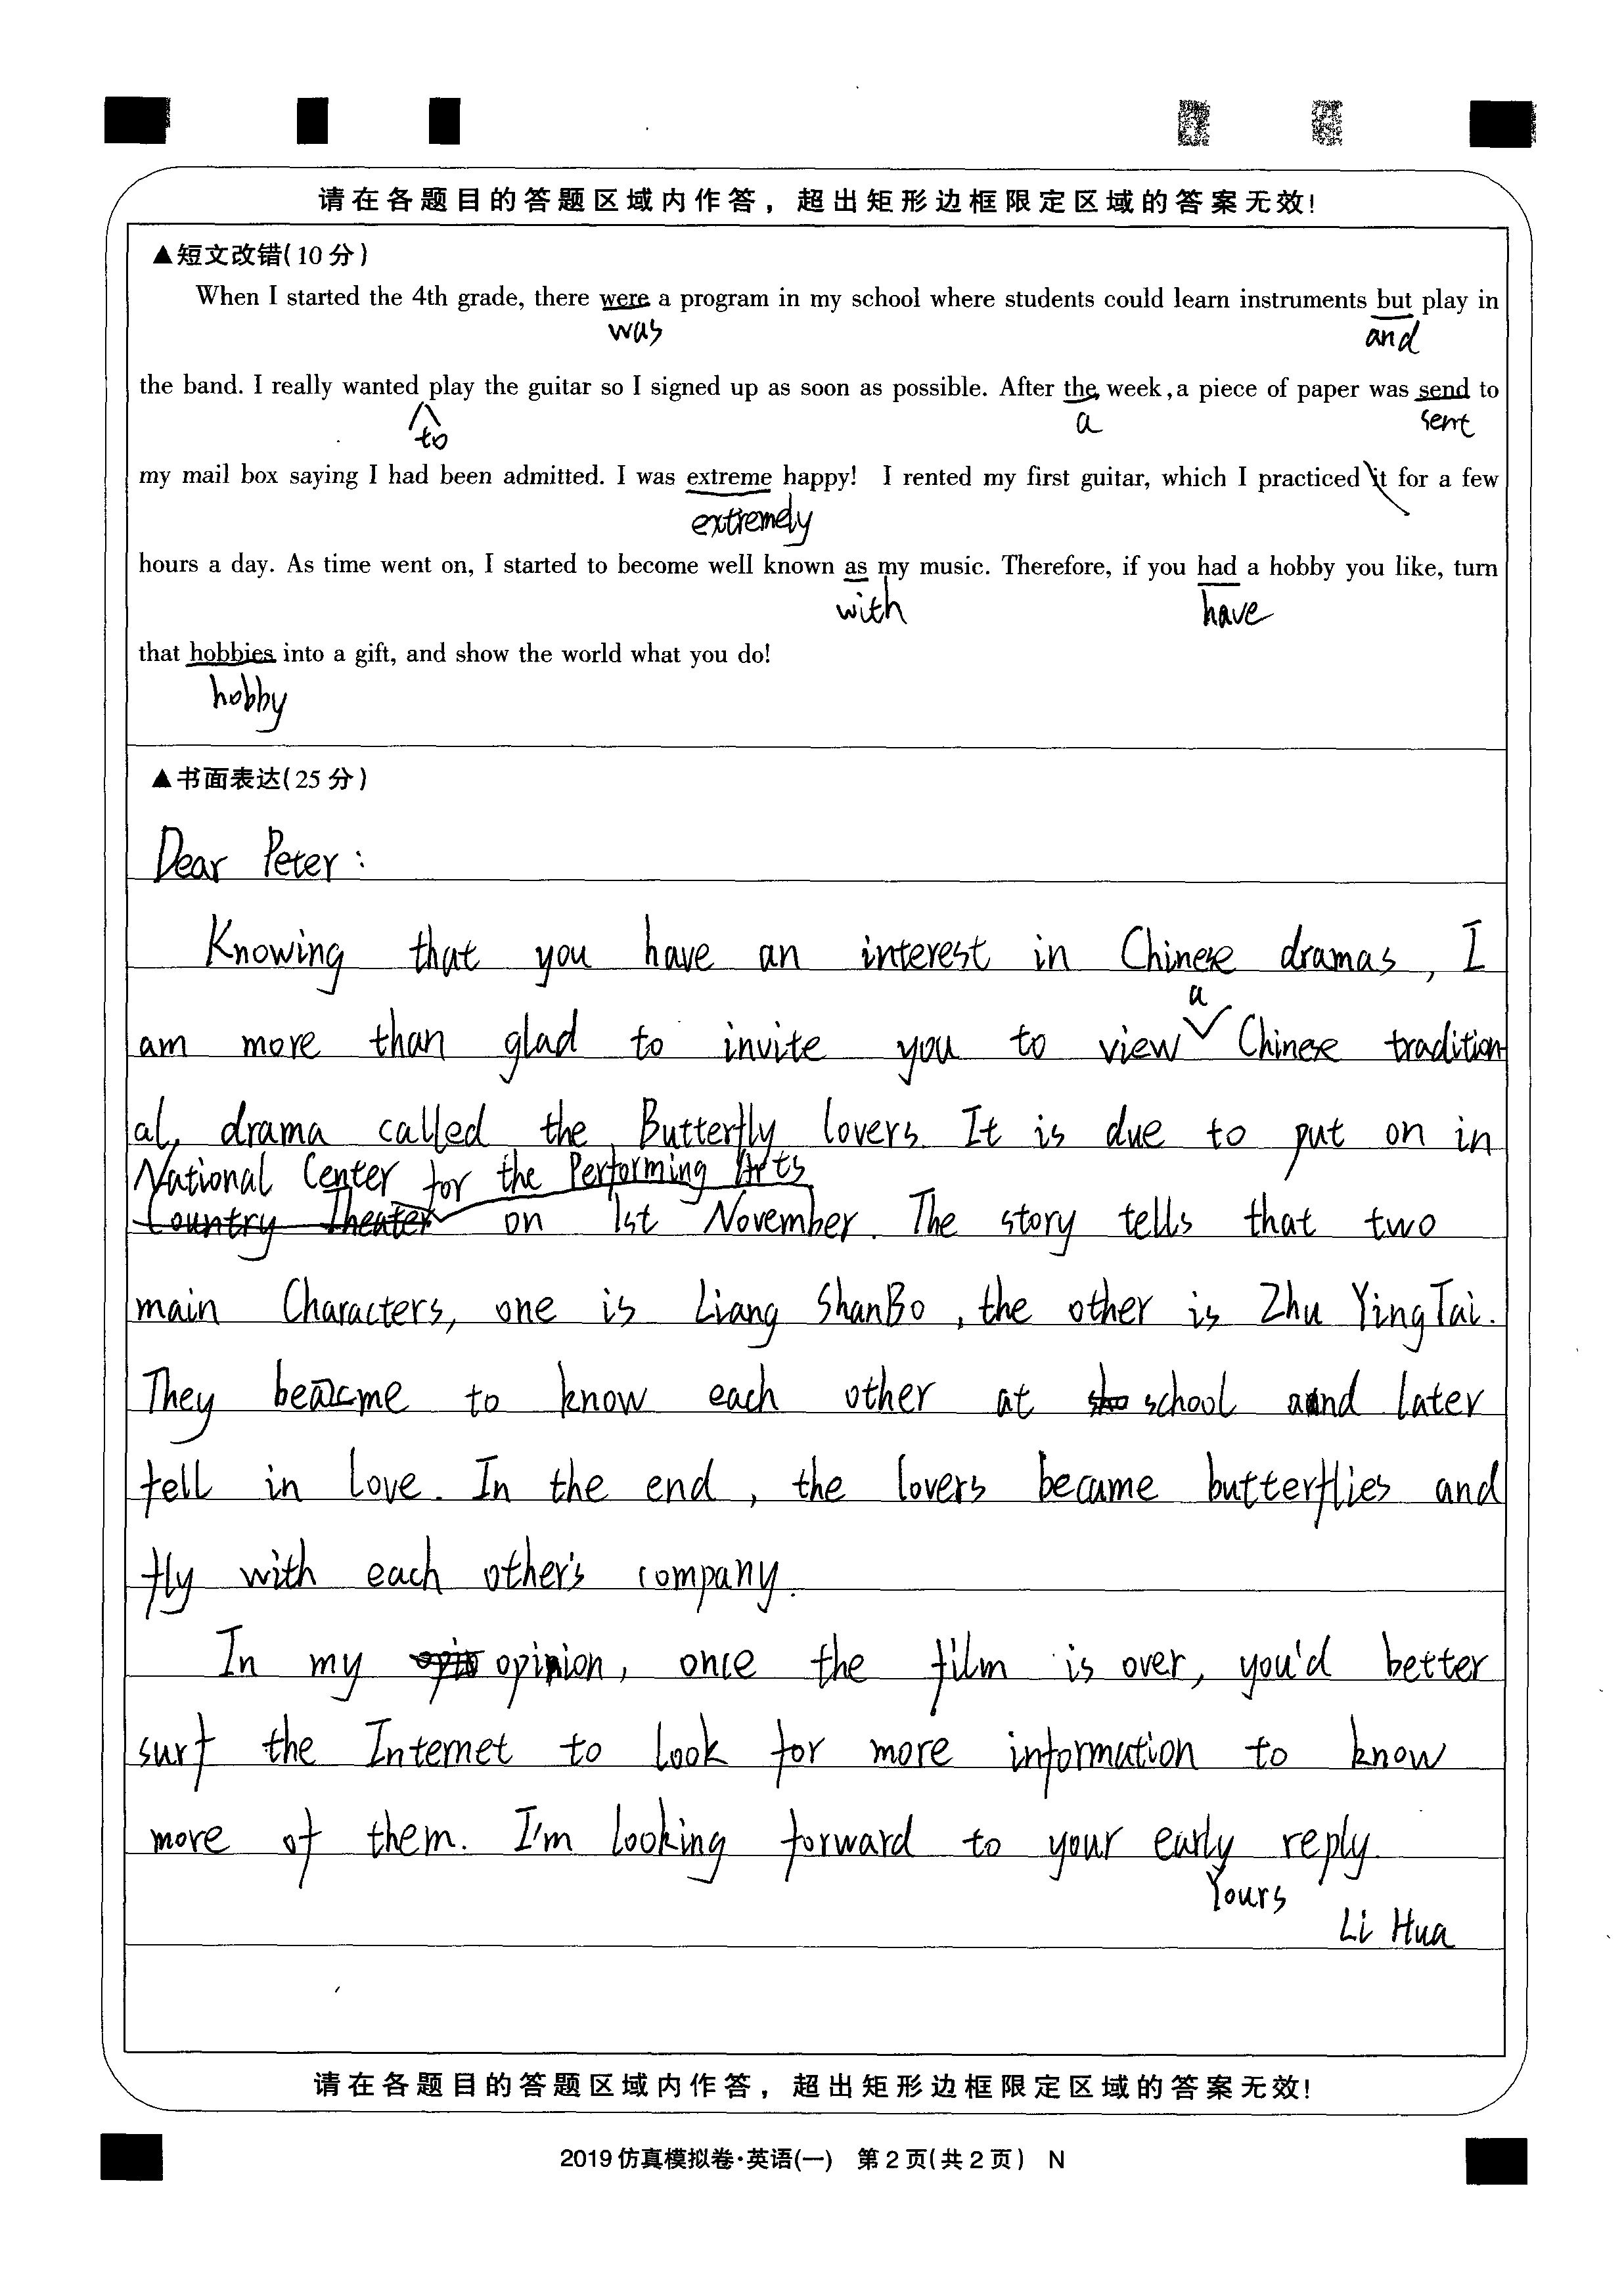 请在各题目的答题区域内作答，超出矩形边框限定区域的答案无效!
▲短文改错(10分)
When I started the 4th grade, there were a program in my school where students could learn instruments but play in
was
and
the band. I really wanted play the guitar so I signed up as soon as possible. After the week, a piece of paper was send to
to
a
sent
my mail box saying I had been admitted. I was extreme happy! I rented my first guitar, which I practiced it for a few
extremely
hours a day. As time went on, I started to become well known as my music. Therefore, if you had a hobby you like, turn
with
have
that hobbies into a gift, and show the world what you do!
hobby
▲书面表达(25分)
Dear Peter:
Knowing that you have an interest in Chinese dramas, I
a
am more than glad to invite you to view Chinese tradition-
al, drama called the Butterfly lovers. It is due to put on in
National Center for the Performing Arts
Country Theater on 1st November. The story tells that two
main Characters, one is Liang ShanBo, the other is Zhu YingTai.
They became to know each other at school and later
fell in love. In the end, the lovers became butterflies and
fly with each other's company.
In my opinion, once the film is over, you'd better
surf the Internet to look for more information to know
more of them. I'm looking forward to your early reply.
Yours
Li Hua
请在各题目的答题区域内作答，超出矩形边框限定区域的答案无效!
2019仿真模拟卷·英语(一) 第2页(共2页) N